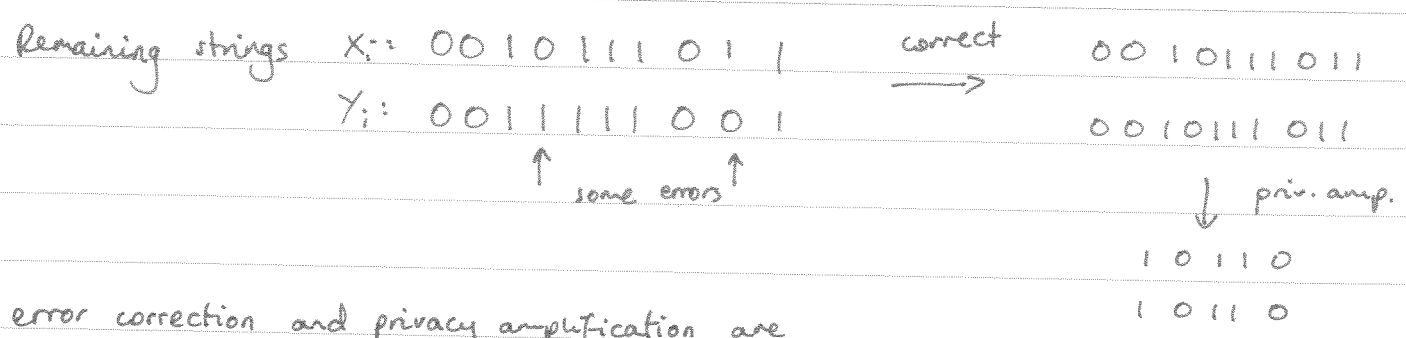 Remaining strings Xi: 0 0 1 0 1 1 1 0 1 1 correct 0 0 1 0 1 1 1 0 1 1
Yi: 0 0 1 1 1 1 1 0 0 1 → 0 0 1 0 1 1 1 0 1 1
↑ some errors ↑ ↓ priv. amp.
1 0 1 1 0
1 0 1 1 0
error correction and privacy amplification are